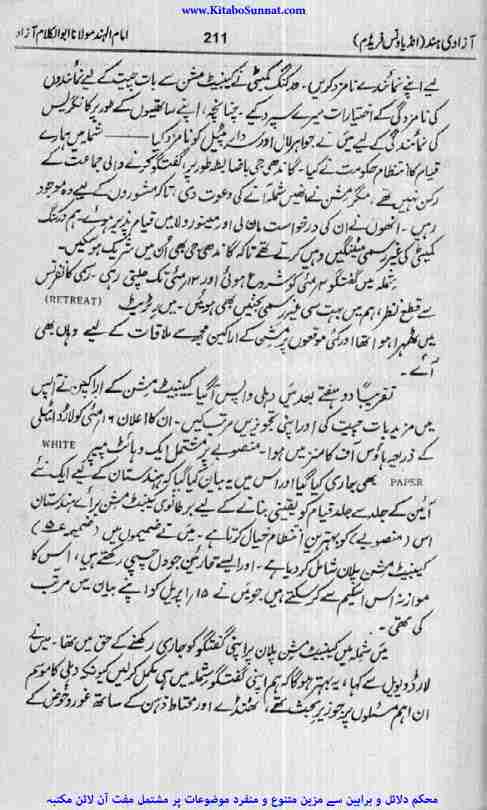 www.KitaboSunnat.com
آزادیِ ہند (انڈیا ونس فریڈم)
211
امام الہند مولانا ابوالکلام آزاد
لیے اپنے نمائندے نامزد کریں۔ ورکنگ کمیٹی نے کیبنیٹ مشن سے بات چیت کے لیے نمائندوں
کی نامزدگی کے اختیارات میرے سپرد کیے۔ چنانچہ، اپنے ساتھیوں کے طور پر کانگریس
کی نمائندگی کے لیے میں نے جواہر لال اور سردار پٹیل کو نامزد کیا —— شملہ میں ہمارے
قیام کا انتظام حکومت نے کیا۔ گاندھی جی باضابطہ طور پر گفتگو کرنے والی جماعت کے
رکن نہیں تھے، مگر مشن نے انھیں شملہ آنے کی دعوت دی تاکہ مشوروں کے لیے وہ موجود
رہیں۔ انھوں نے ان کی درخواست مان لی اور مینورولا میں قیام پذیر ہوئے۔ ہم ورکنگ
کمیٹی کی غیر رسمی میٹنگیں وہیں کرتے تھے تاکہ گاندھی جی بھی ان میں شریک ہو سکیں۔
شملہ میں گفتگو ۲؍مئی کو شروع ہوئی اور ۱۲؍مئی تک چلتی رہی۔ رسمی کانفرنس
سے قطع نظر، ہم میں بہت سی غیر رسمی بحثیں بھی ہوئیں۔ میں ریٹریٹ (RETREAT)
میں ٹھہرا ہوا تھا اور کئی موقعوں پر مشن کے اراکین مجھ سے ملاقات کے لیے وہاں بھی
آئے۔
تقریباً دو ہفتے بعد میں دہلی واپس آ گیا۔ کیبنیٹ مشن کے اراکین نے آپس
میں مزید بات چیت کی اور اپنی تجویزیں مرتب کیں۔ ان کا اعلان ۱۶؍مئی کو لارڈ ایٹلی
کے ذریعہ ہاؤس آف کامنز میں ہوا۔ منصوبے پر مشتمل ایک وہائٹ پیپر WHITE
PAPER بھی جاری کیا گیا اور اس میں یہ بیان کیا گیا کہ ہندستان کے لیے ایک نئے
آئین کے جلد سے جلد قیام کو یقینی بنانے کے لیے برطانوی کیبنیٹ مشن برائے ہندستان
اس (منصوبے) کو بہترین انتظام خیال کرتا ہے۔ میں نے ضمیموں میں (ضمیمہ ۵)
کیبنیٹ مشن پلان شامل کر دیا ہے۔ اور ایسے قارئین جو دلچسپی رکھتے ہیں، اس کا
موازنہ اس اسکیم سے کر سکتے ہیں جو میں نے ۱۵؍اپریل کو اپنے بیان میں مرتب
کی تھی۔
میں شملہ میں کیبنیٹ مشن پلان پر اپنی گفتگو کو جاری رکھنے کے حق میں تھا۔ میں نے
لارڈ ویول سے کہا، یہ بہتر ہوگا کہ ہم اپنی گفتگو شملہ میں ہی مکمل کر لیں کیونکہ دہلی کا موسم
ان اہم مسئلوں پر جو زیر بحث تھے، ٹھنڈے اور محتاط ذہن کے ساتھ غور و خوض کے
محکم دلائل و براہین سے مزین متنوع و منفرد موضوعات پر مشتمل مفت آن لائن مکتبہ